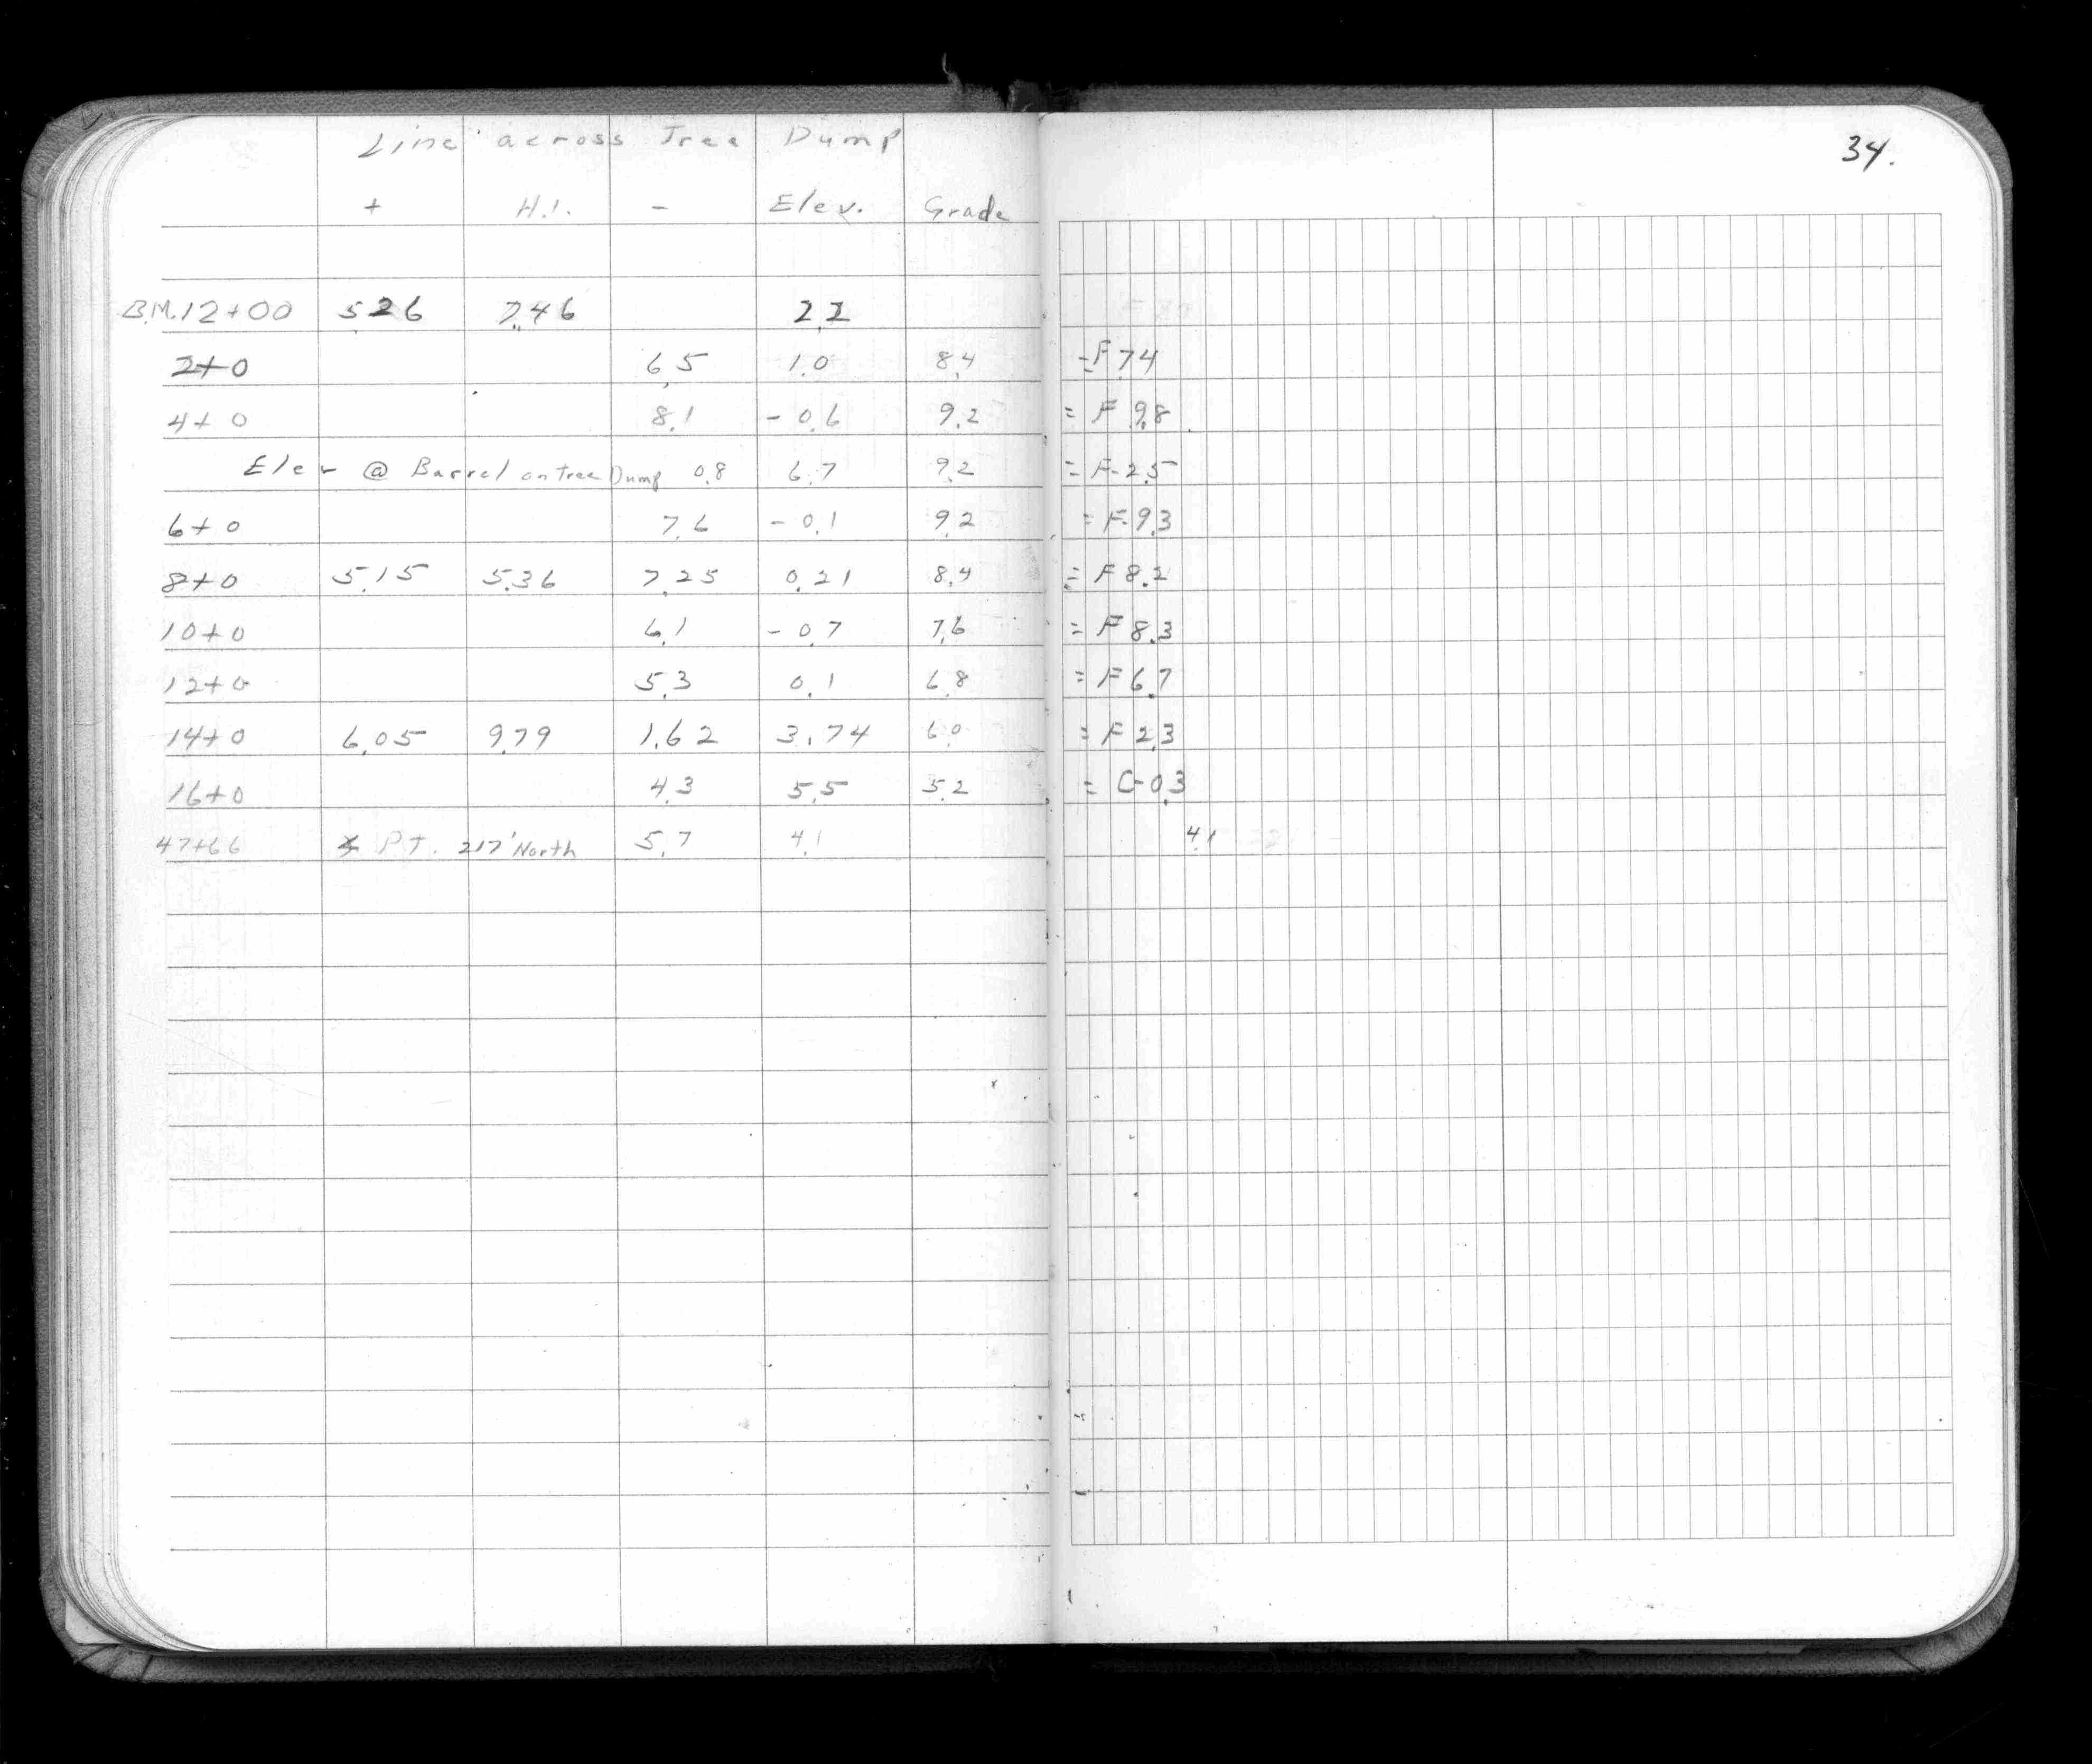 Line across Tree Dump
34.
+ H.I. - Elev. Grade
B.M. 12+00 5.26 7.46 2.2
2+0 6.5 1.0 8.4 = F 7.4
4+0 8.1 - 0.6 9.2 = F 9.8
Elev @ Barrel on Tree Dump 0.8 6.7 9.2 = F-2.5
6+0 7.6 - 0.1 9.2 = F-9.3
8+0 5.15 5.36 7.25 0.21 8.4 = F 8.2
10+0 6.1 - 0.7 7.6 = F 8.3
12+0 5.3 0.1 6.8 = F 6.7
14+0 6.05 9.79 1.62 3.74 6.0 = F 2.3
16+0 4.3 5.5 5.2 = C-0.3
47+66 P.T. 217' North 5.7 4.1 4.1